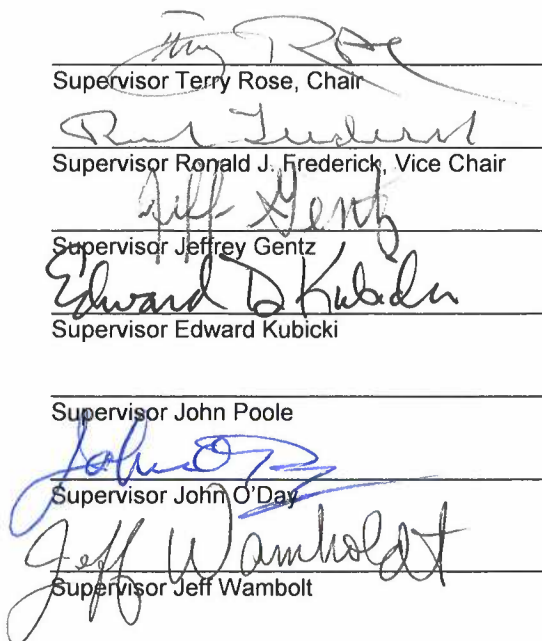 Terry Rose
Supervisor Terry Rose, Chair
Supervisor Ronald J. Frederick, Vice Chair
Jeff Gentz
Supervisor Jeffrey Gentz
Edward D Kubicki
Supervisor Edward Kubicki
Supervisor John Poole
John O'D
Supervisor John O'Day
Jeff Wamholdt
Supervisor Jeff Wambolt